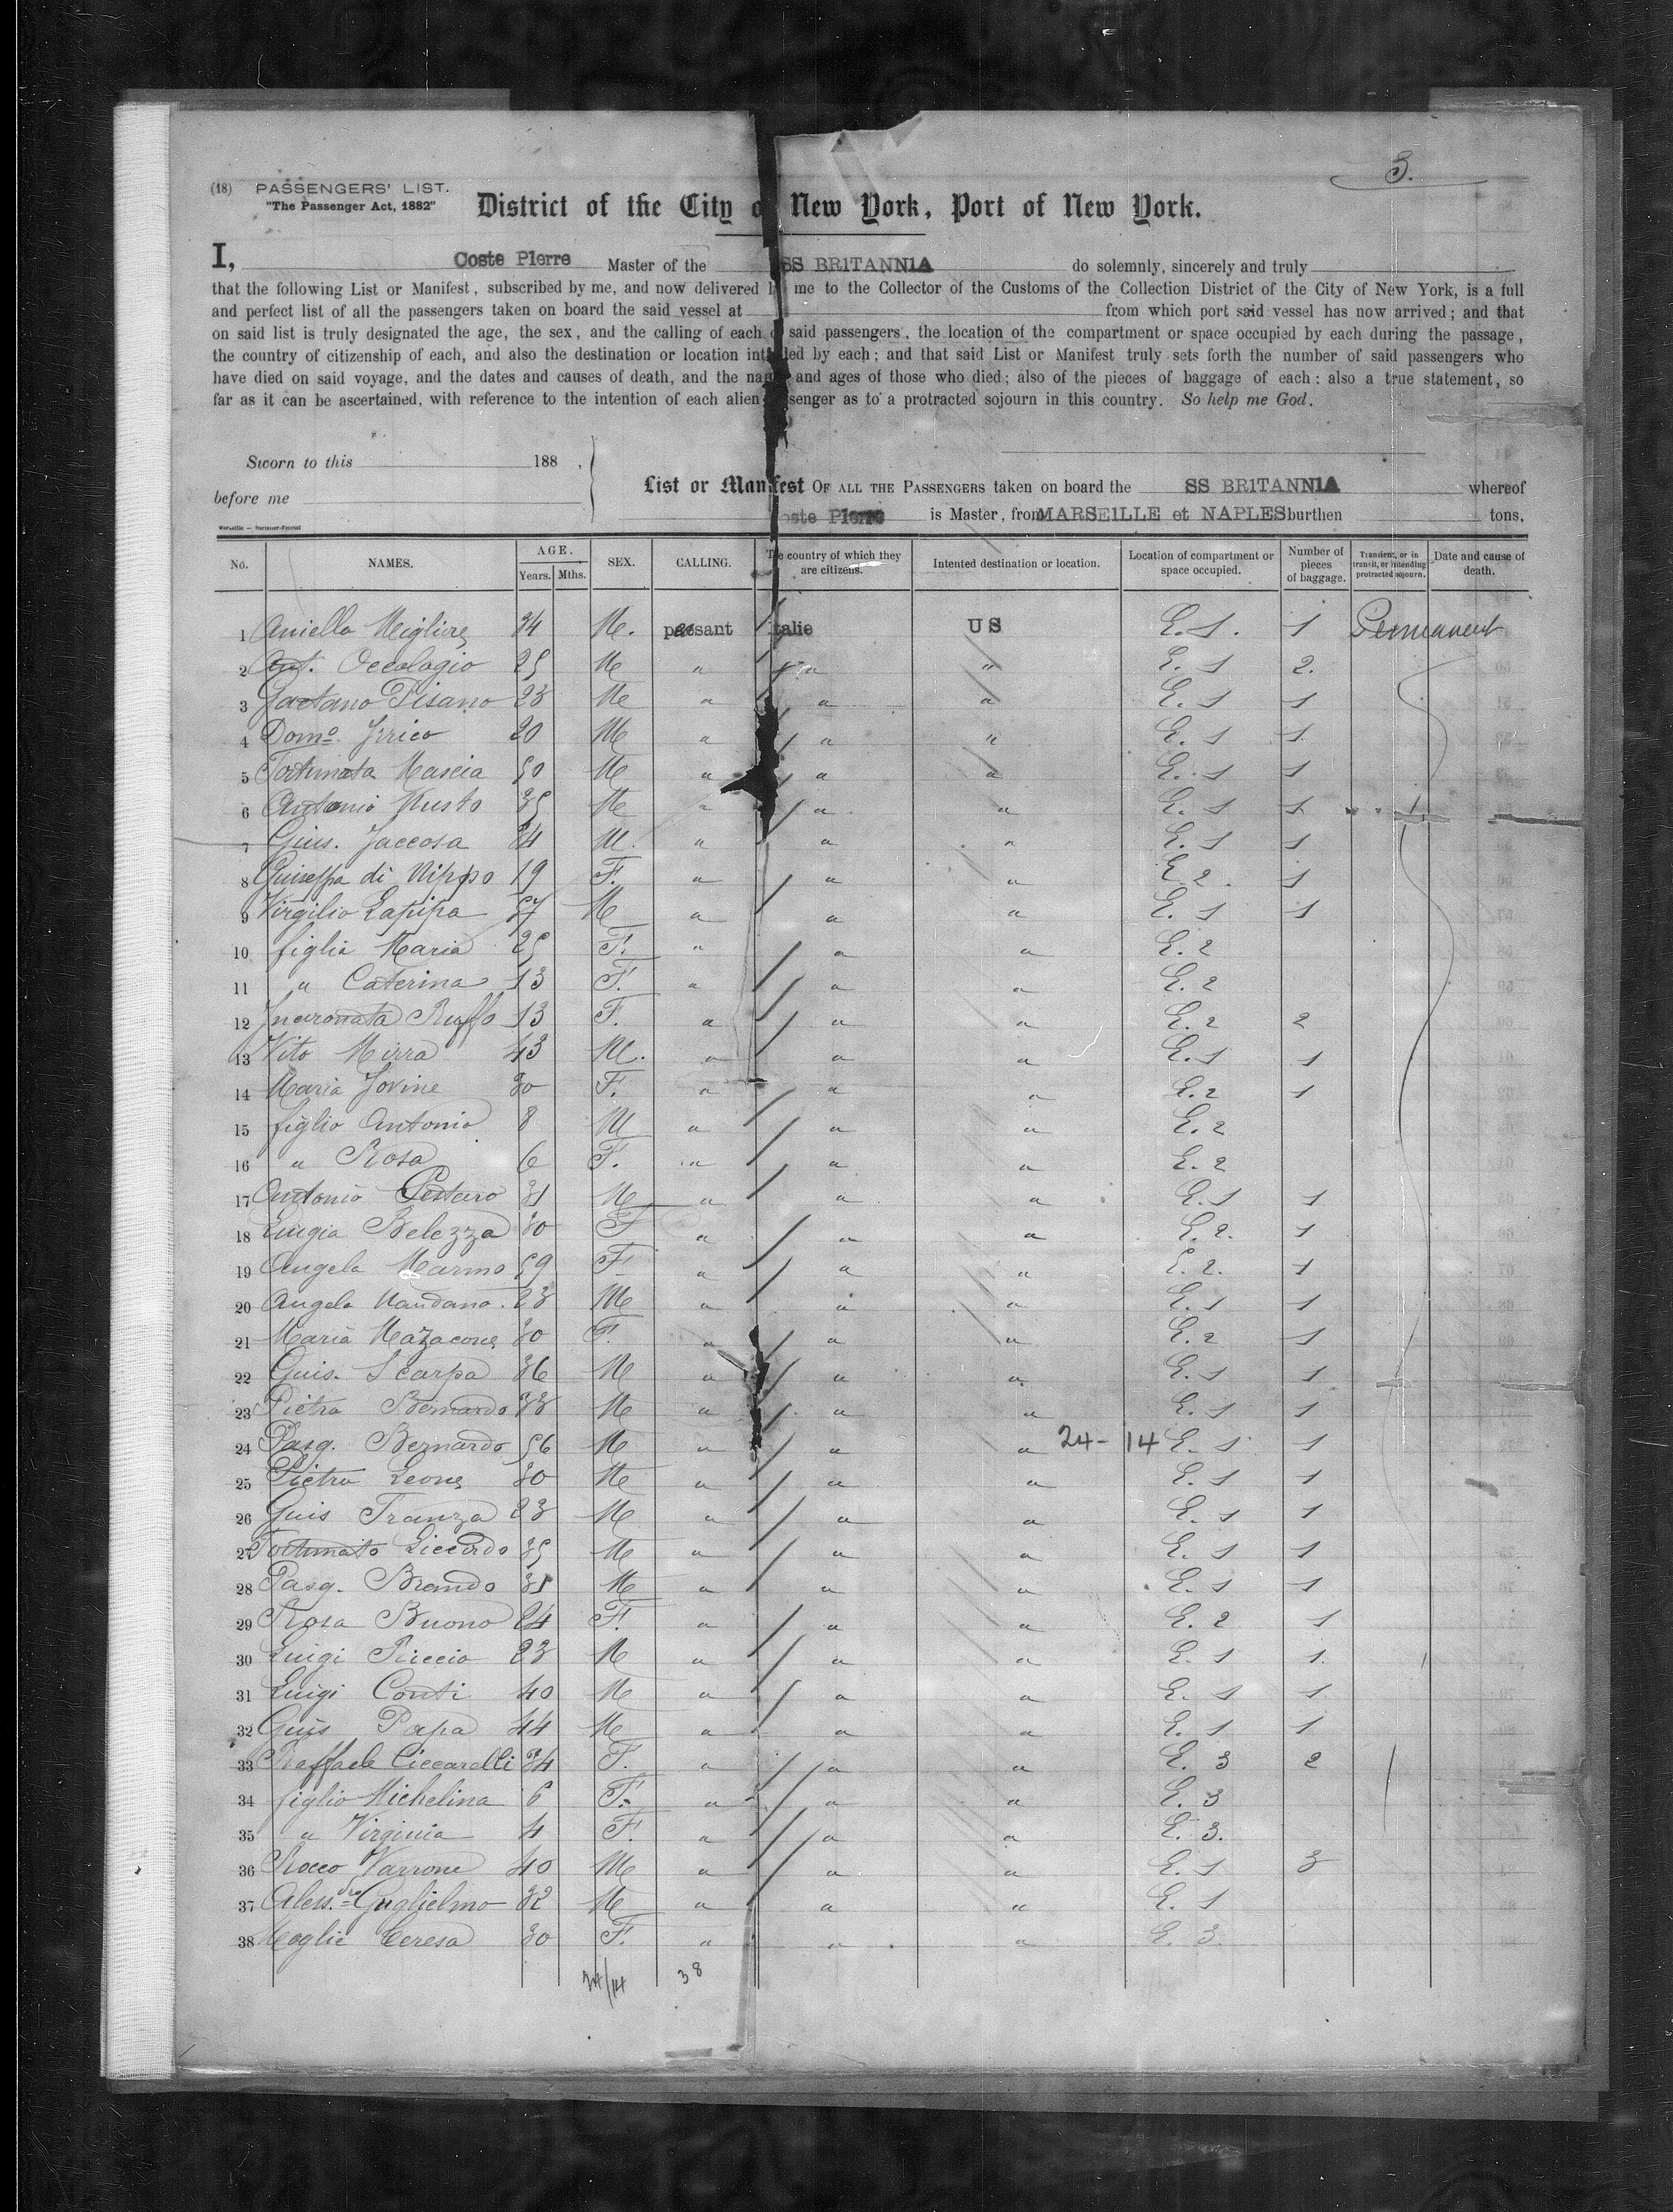 3.
(18) PASSENGERS' LIST.
"The Passenger Act, 1882"
District of the City of New York, Port of New York.
I, Coste Pierre Master of the SS BR1TANN1A do solemnly, sincerely and truly
that the following List or Manifest, subscribed by me, and now delivered by me to the Collector of the Customs of the Collection District of the City of New York, is a full
and perfect list of all the passengers taken on board the said vessel at from which port said vessel has now arrived; and that
on said list is truly designated the age, the sex, and the calling of each of said passengers, the location of the compartment or space occupied by each during the passage,
the country of citizenship of each, and also the destination or location intended by each; and that said List or Manifest truly sets forth the number of said passengers who
have died on said voyage, and the dates and causes of death, and the names and ages of those who died; also of the pieces of baggage of each: also a true statement, so
far as it can be ascertained, with reference to the intention of each alien passenger as to a protracted sojourn in this country. So help me God.
Sworn to this 188 ,
before me
List or Manifest OF ALL THE PASSENGERS taken on board the SS BR1TANN1A whereof
Coste Pierre is Master, from MARSE1LLE et NAPLES burthen tons,
No. NAMES. AGE. Years. Mths. SEX. CALLING. The country of which they are citizens. Intented destination or location. Location of compartment or space occupied. Number of pieces of baggage. Transient, or in transit, or intending protracted sojourn. Date and cause of death.
1 Aniello Migliore 34 M. paesant Italie U S E. 1. 1 Permanent
2 Ant. Occologio 25 M " " " E. 1 2.
3 Gaetano Pisano 23 M " " " E. 1 1
4 Domo. Jrrico 20 M " " " E. 1 1
5 Fortunata Mascia 50 M " " " E. 1 1
6 Antonio Musto 35 M " " " E. 1 1
7 Gius. Jaccosa 34 M. " " " E. 1 1
8 Guiseppa di Nippo 19 F. " " " E 2. 1
9 Virgilio Lapipa 57 M " " " E. 1 1
10 figlia Maria 25 F. " " " E. 2
11 " Caterina 13 F. " " " E. 2
12 Jncoronata Ruffo 13 F. " " " E. 2 2
13 Vito Mirra 43 M. " " " E. 1 1
14 Maria Jovine 30 F. " " " E. 2 1
15 figlio Antonio 8 M " " " E. 2
16 " Rosa 6 F. " " " E. 2
17 Antonio 31 M " " " E. 1 1
18 Luigia Belezza 30 F " " " E. 2. 1
19 Angela Marino 59 F " " " E. 2. 1
20 Angelo Mandano. 23 M " " " E. 1 1
21 Maria Mazacone 30 F. " " " E. 2 1
22 Guis. Scarpa 36 M " " " E. 1 1
23 Pietro Bernardo 33 M " " " E. 1 1
24 Pasq. Bernardo 56 M " " " 24 - 14 E. 1 1
25 Pietro Leone 30 M " " " E. 1 1
26 Guis Franza 23 M " " " E. 1 1
27 Fortunato Liccardo 35 M " " " E. 1 1
28 Pasq. Brando 31 M " " " E. 1 1
29 Rosa Buono 24 F. " " " E. 2 1
30 Luigi Riccio 23 M " " " E. 1 1.
31 Luigi Conti 40 M " " " E. 1 1
32 Guis Papa 44 M " " " E. 1 1
33 Raffaele Ciccarelli 34 F. " " " E. 3 2
34 figlio Michelina 6 F. " " " E. 3
35 " Virginia 4 F. " " " E. 3.
36 Rocco Varrone 40 M " " " E. 1 3
37 Aless.dro Guglielmo 32 M " " " E. 1
38 Moglie Teresa 30 F. " " " E. 3.
24/14 38